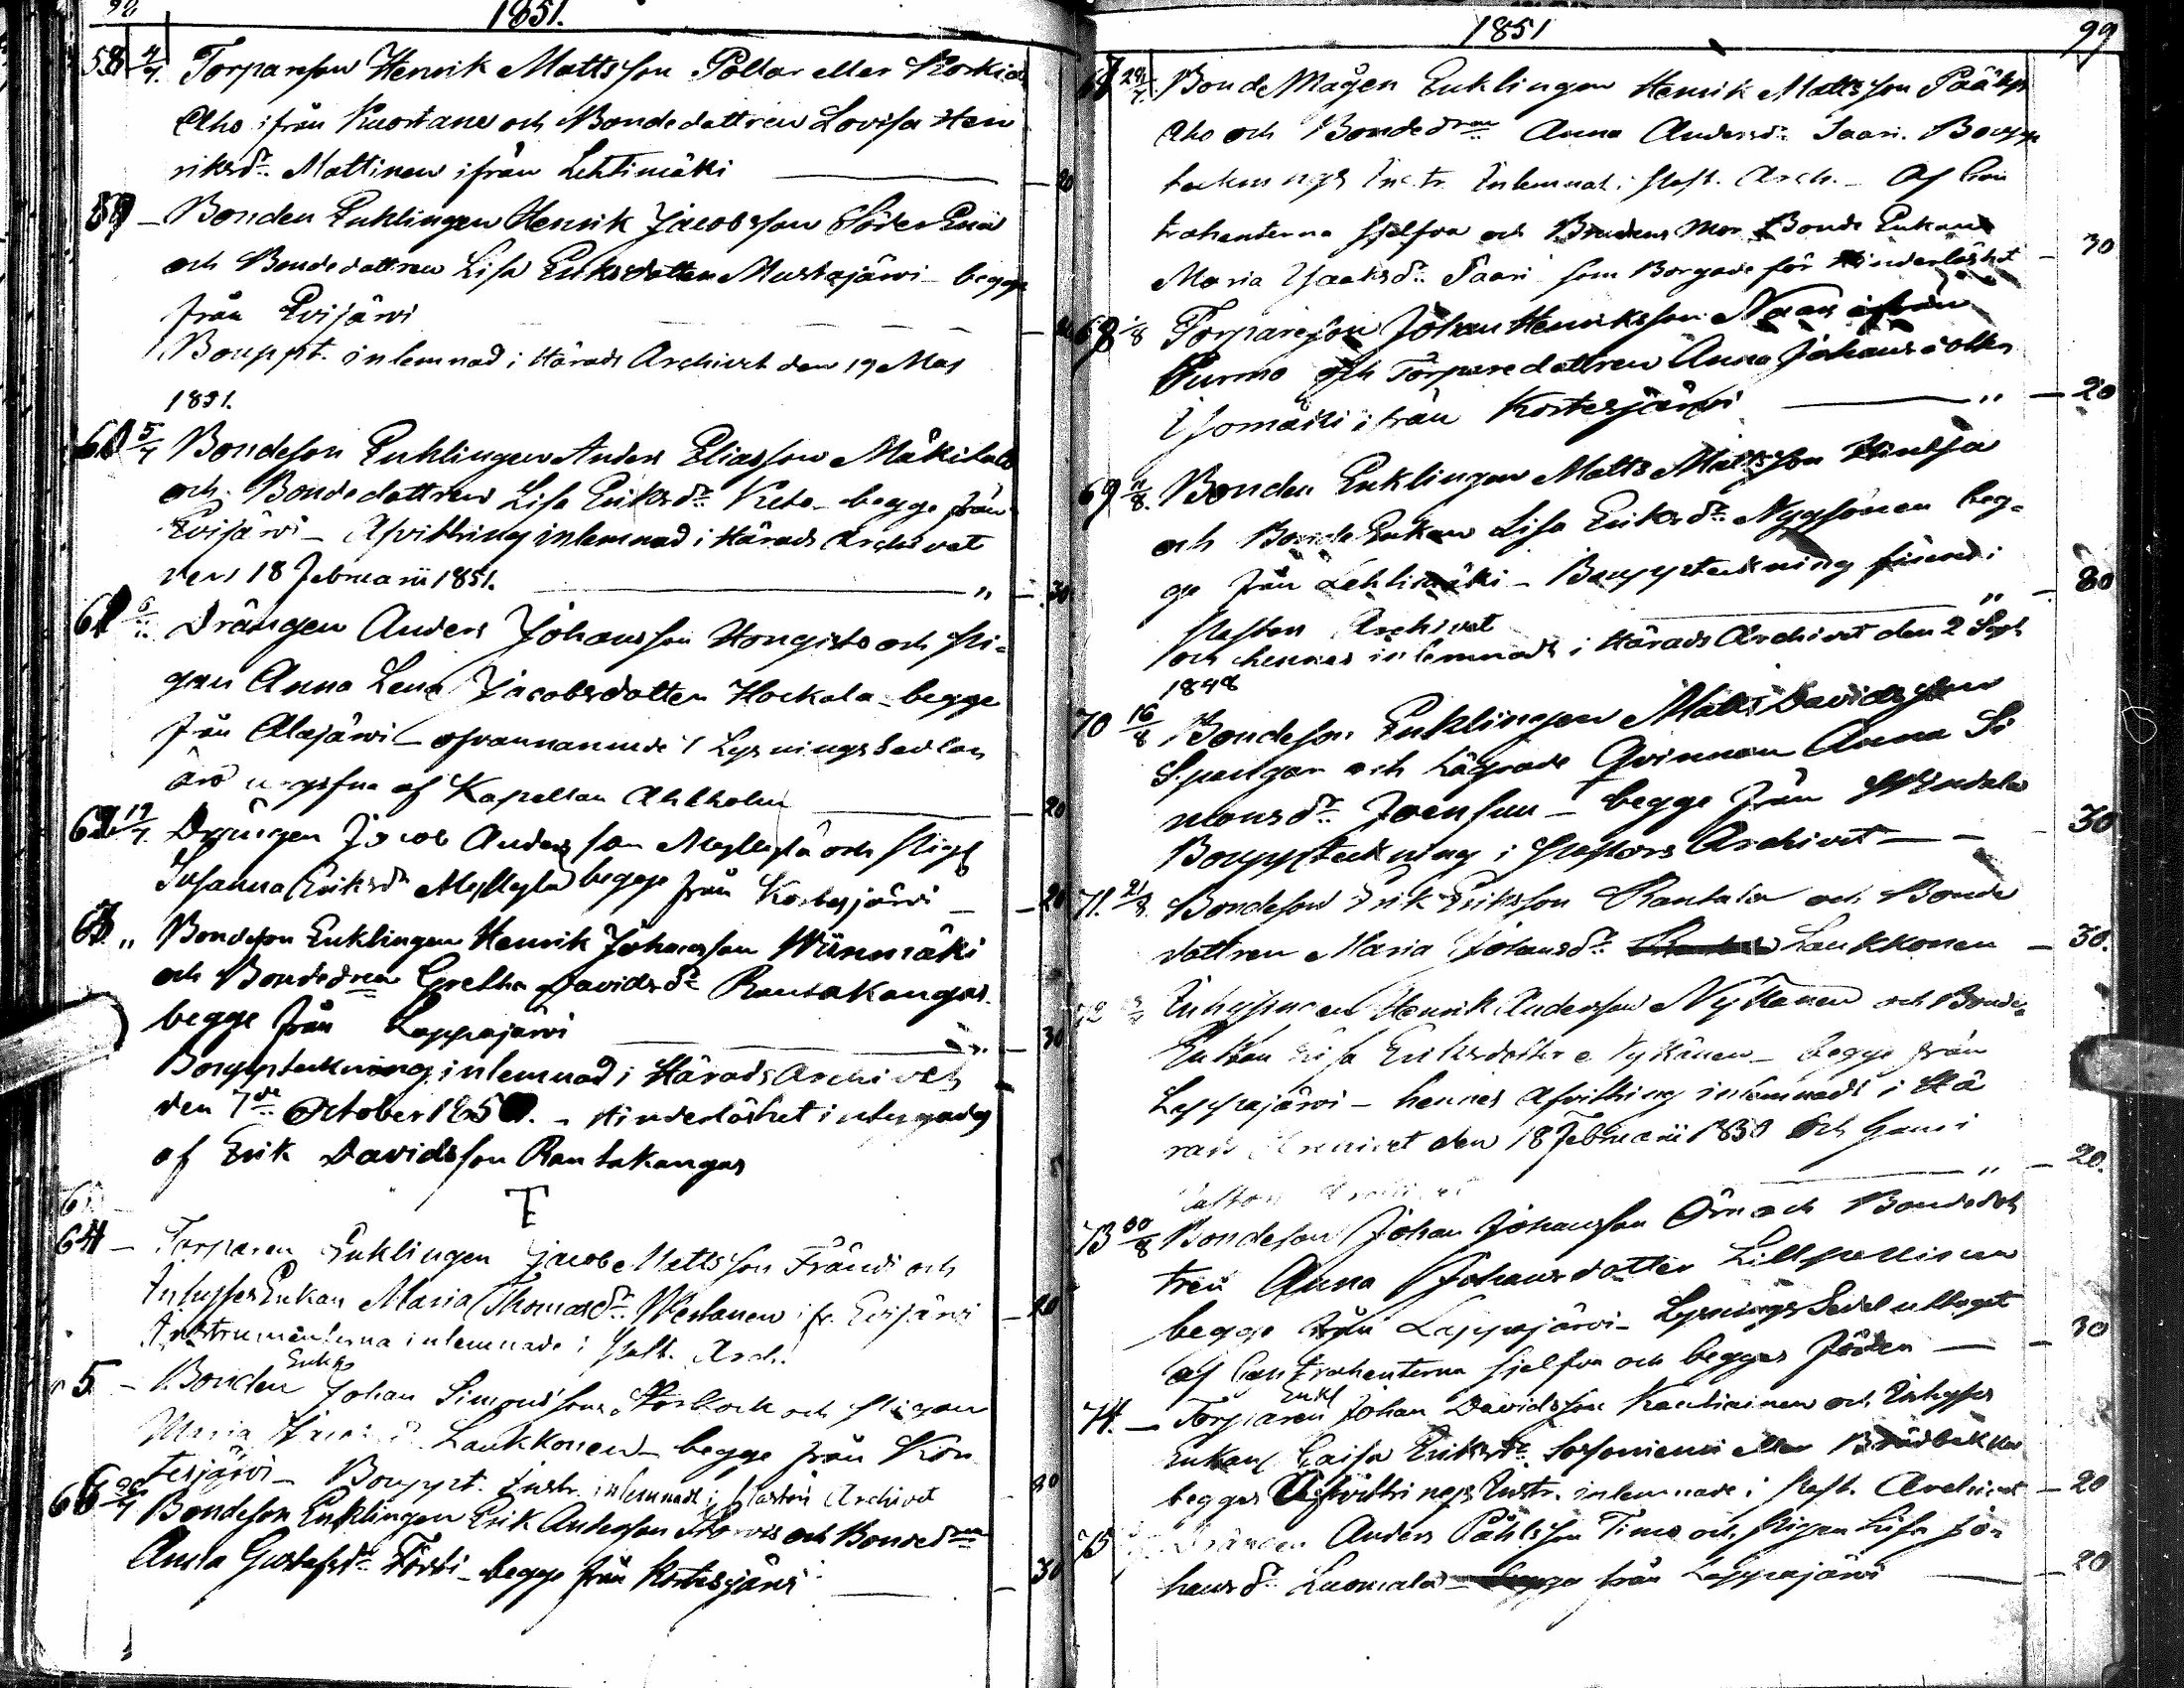 98
1851.
58 4/7. Torpareson Henrik Mattsson Pollar eller Korkia
Aho ifrån Kuortane och Bondedottren Lovisa Hen
riksdr. Mattinen ifrån Lehtimäki — 20
59 — Bonden Enklingen Henrik Jacobsson Söder
och Bondedottren Lisa Eriksdotter Mustajärvi — begge
från Evijärvi —
Bouppt. inlemnad i Härads Archivet den 19 Maj
1851.
60 5/7 Bondeson Enklingen Anders Eliasson Mäkitalo
och Bondedottren Lisa Eriksdr. Keto — begge från
Evijärvi — Afvittring inlemnad i Härads Archivet
den 18 Februarii 1851. — " — 30
61 6/" Drängen Anders Johansson Hongisto och Pi=
gan Anna Lena Jacobsdotter Hockala — begge
från Alajärvi — ofvannannde Lysningssedlar
äro utgifna af Kapellan Ahlholm — 20
62 17/7. Drängen Jacob Andersson Myllylä och Pig.
Susanna Eriksdr Myllylä begge från Kortesjärvi — 20
63. " Bondeson Enklingen Henrik Johansson Wiinmäki
och Bondedren Gretha Davidsdr Rantakangas
begge från Lappajärvi — 30
Bouppteckning inlemnad i Härads Archivet
den 7de October 1850. — Hinderlöshet intygades
af Erik Davidsson Rantakangas
64 — Torparen Enklingen Jacob Mattsson Frändi och
Inhyses Enkan Maria Thomasdr. Westanen ifr. Evijärvi — 20
Instrumenterna inlemnade i Past. Arch.
5 — Bonden Enkl. Johan Simonsson Storback och Pigan
Maria Laukkonen — begge från Kor
tesjärvi — Bouppt. Instr. inlemnadt i Pastors Archivet — 20
66 20/7 Bondeson Enklingen Erik Andersson och Bondedren
Anna Gustafsdr. Förbi — begge från Kortesjärvi — 30
1851
99
67 24/7. BondeMågen Enklingen Henrik Mattsson Pääky
Aho och Bondedren Anna Andersdr. Saari. Boupp
tecknings Instr. Inlemnat i Past. Arch. — Af Con
trahenterna sjelfva och Brudens Mor Bonde Enkan
Maria Isaksdr. Saari som Borgade för Hinderlöshet — 30
68 1/8 Torpareson Johan Henriksson ifrån
Purmo och Torparedottren Anna Johansdotter
Isomäki ifrån Kortesjärvi — " — 20
69 11/8. Bonden Enklingen Matts Mattsson Hintsa
och Bonde Enkan Lisa Eriksdr. Nygsönen beg=
ge från Lehtimäki — Bouppteckning finnes i
Pastors Archivet — " — 30
och hennes inlemnadt i Härads Archivet den 2 Sept
1848
70 16/8 Bondeson Enklingen Matts Davidsson
Spangar och Lägrade Qvinnan Anna Si
monsdr. Joensuu — begge från Windala
Bouppteckning i Pastors Archivet — 30
71. 21/8. Bondeson Erik Eriksson Rantala och Bonde
dottren Maria Johansdr. Laukkonen — 30.
72 Inhysingen Henrik Andersson Nykänen och Bonde=
Enkan Lisa Eriksdotter Nykänen — begge från
Lappajärvi — hennes Afvittring inlemnadt i Hä
rads Archivet den 18 Februarii 1850 och hans i
Pastors Archivet — " — 20.
73 30/8 Bondeson Johan Johansson Örn och Bondedot
tren Anna Johansdotter Lillpellinen
begge från Lappajärvi — Lysnings Sedel uttaget
af Contrahenterna sjelfva och begges Föräldrar — 30
74. — Torparen Enkl Johan Davidsson Kautiainen och Inhyses
Enkan Caisa Eriksdr. Sarsoniemi eller
begges Afvittrings Instr. inlemnade i Past. Archivet — 20
75 Drängen Anders Påhlsson Timo och Pigan Lisa Jo=
hansdr. Luomala — begge från Lappajärvi — 20